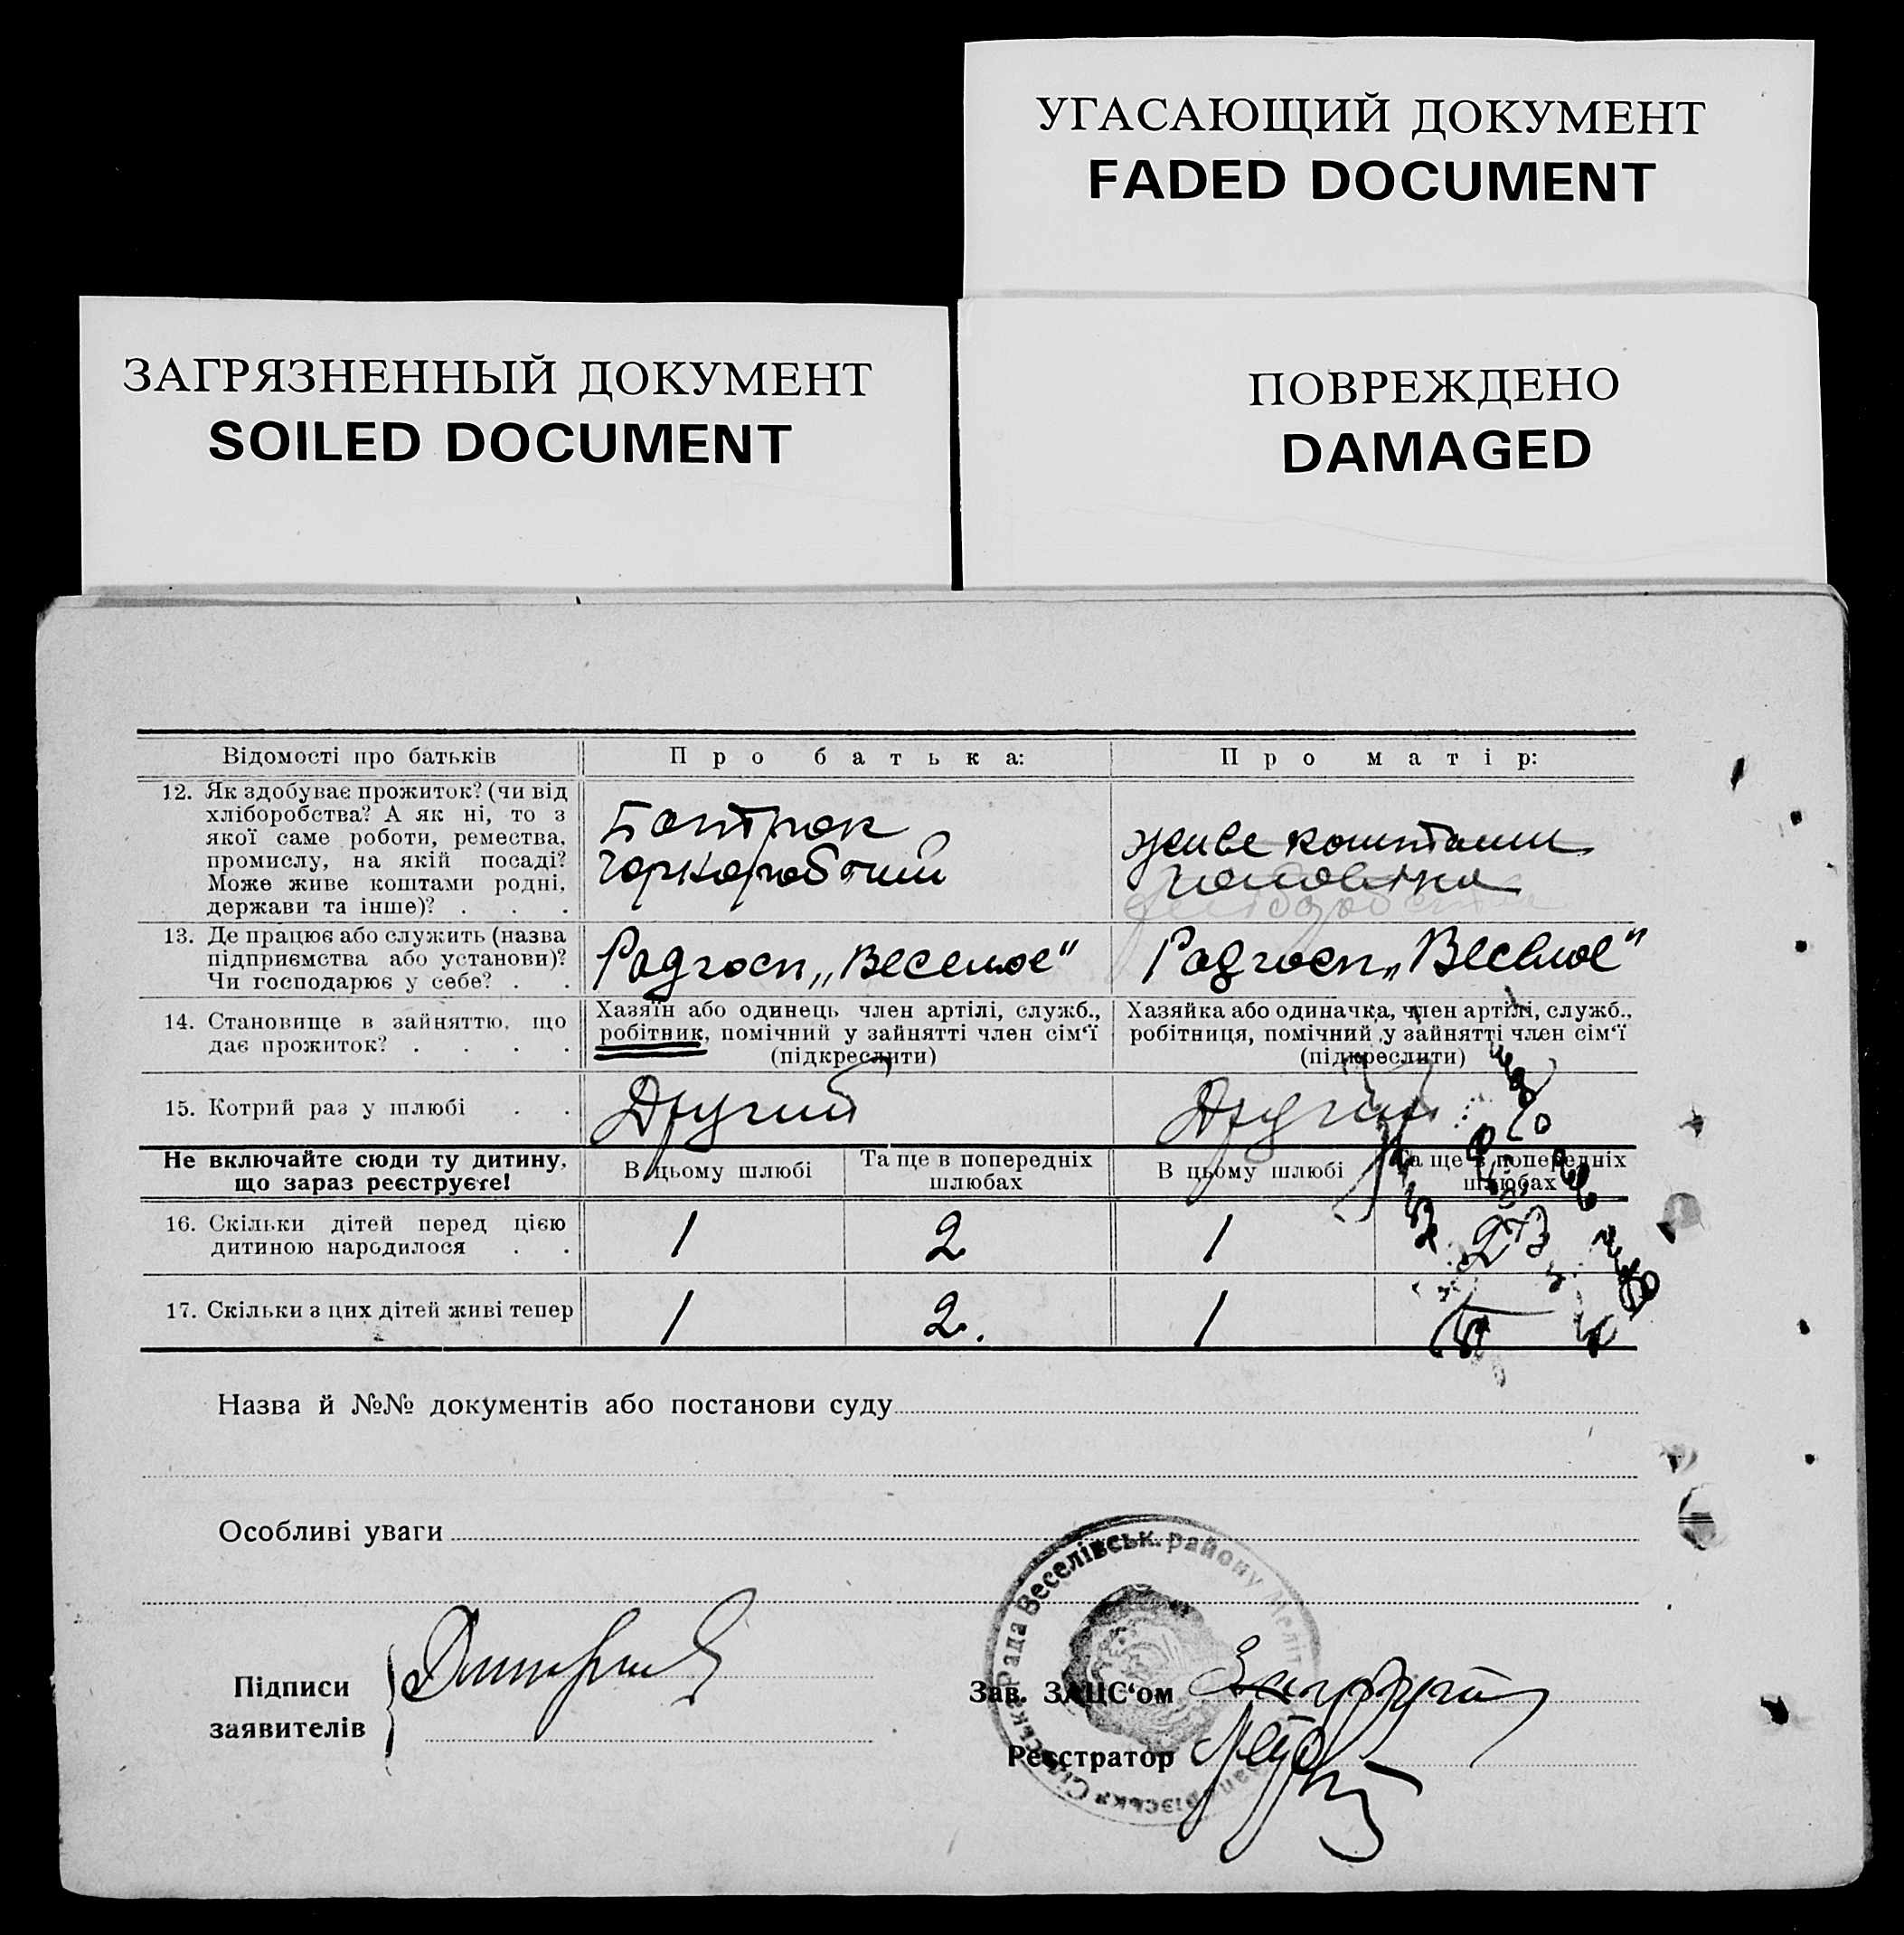 УГАСАЮЩИЙ ДОКУМЕНТ
FADED DOCUMENT
ЗАГРЯЗНЕННЫЙ ДОКУМЕНТ
SOILED DOCUMENT
ПОВРЕЖДЕНО
DAMAGED
Відомості про батьків
Про батька:
Про матір:
12. Як здобуває прожиток? (чи від
хліборобства? А як ні, то з
якої саме роботи, ремества,
промислу, на якій посаді?
Може живе коштами родні,
держави та інше)? . . .
Батрак
чорноробочий
живе коштами
чоловіка
13. Де працює або служить (назва
підприємства або установи)?
Чи господарює у себе? . .
Радгосп „Веселое"
Радгосп „Веселое"
14. Становище в зайняттю, що
дає прожиток? . . . .
Хазяїн або одинець член артілі, служб.,
робітник, помічний у зайнятті член сім'ї
(підкреслити)
Хазяйка або одиначка, член артілі, служб.,
робітниця, помічний у зайнятті член сім'ї
(підкреслити)
15. Котрий раз у шлюбі . .
Другий
Другий
Не включайте сюди ту дитину,
що зараз реєструєте!
В цьому шлюбі
Та ще в попередніх
шлюбах
В цьому шлюбі
Та ще в попередніх
шлюбах
16. Скільки дітей перед цією
дитиною народилося . .
1
2
1
17. Скільки з цих дітей живі тепер
1
2.
1
Назва й №№ документів або постанови суду
Особливі уваги
Підписи
заявителів
Зав. ЗАЦС'ом
Реєстратор
Рада Веселівськ. району